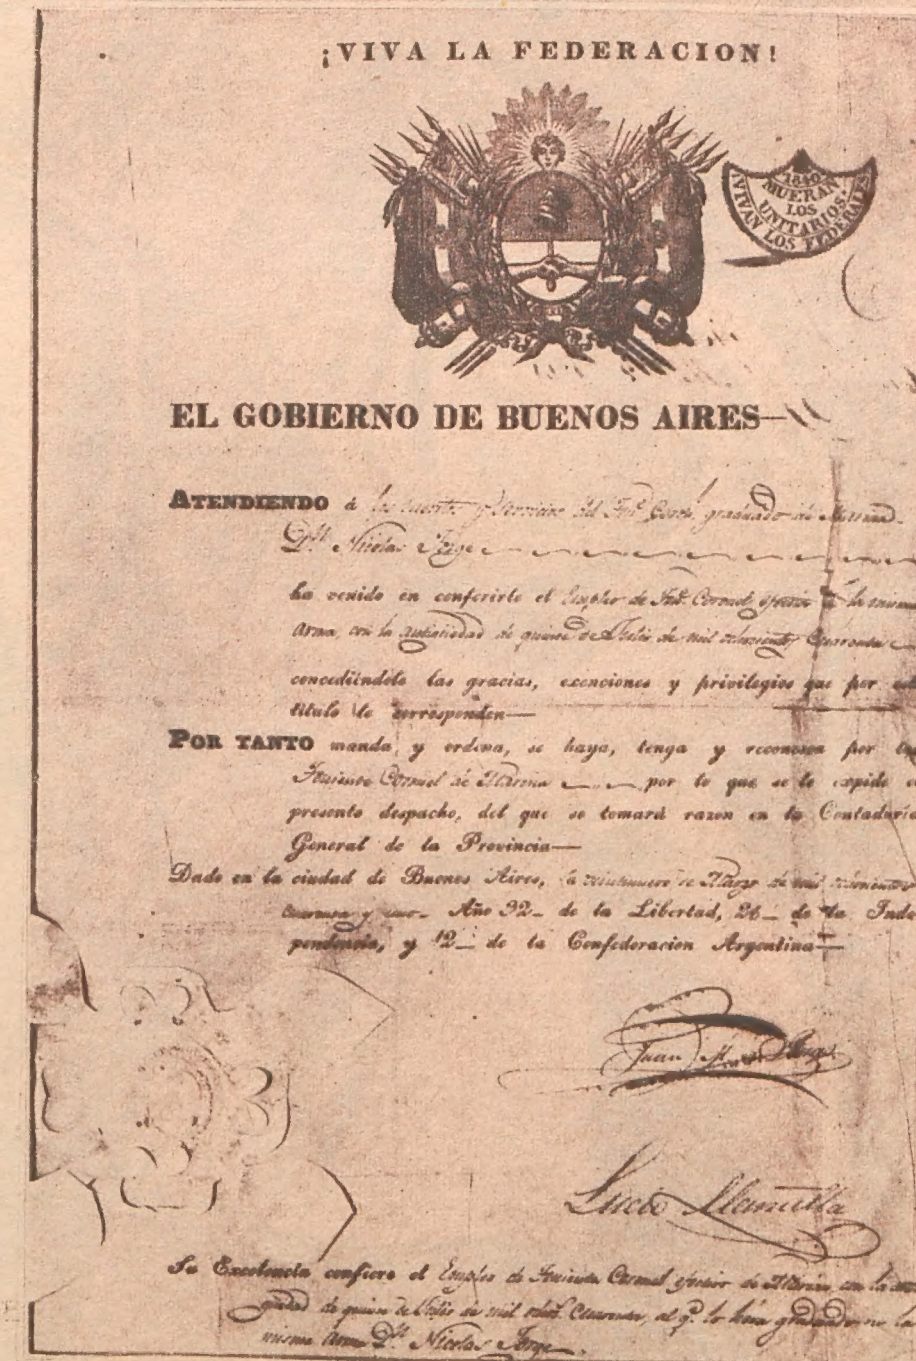 ¡VIVA LA FEDERACION!
1840
MUERAN
LOS
UNITARIOS!
¡VIVAN LOS FEDERALES
EL GOBIERNO DE BUENOS AIRES
ATENDIENDO á los y servicios del Ten.e Coron.l graduado de Marina
D.n Nicolas Jorge
ha venido en conferirle el Empleo de Ten.e Coronel efectivo
Arma, con la antiguedad de quince de Julio de mil ochocientos Cuarenta
concediéndole las gracias, exenciones y privilegios que por
titulo le corresponden
POR TANTO manda y ordena, se haya, tenga y reconozca por
Teniente Coronel de Marina por lo que se le expide
presente despacho, del que se tomará razon en la Contaduria
General de la Provincia
Dado en la ciudad de Buenos Aires, de Marzo de mil ochocientos
cuarenta y uno Año 32 de la Libertad, 26 de la Inde
pendencia, y 12 de la Confederacion Argentina
Juan M. de Rosas
Lucio Mansilla
Su Excelencia confiere el Empleo de Teniente Coronel efectivo de Marina con la
de quince de Julio de mil Cuarenta, al q.e lo
misma Arma D.n Nicolas Jorge